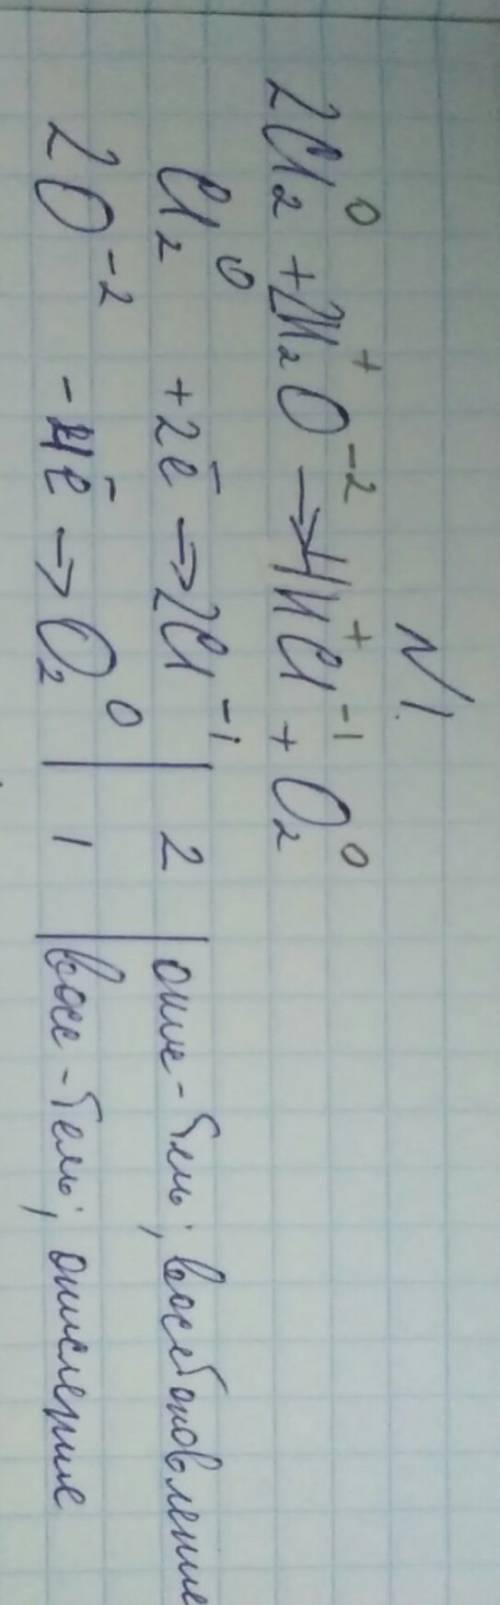 N1.
2Cl₂⁰ + 2H₂⁺O⁻² → 4H⁺Cl⁻¹ + O₂⁰
Cl₂⁰ +2ē → 2Cl⁻¹ | 2 | окис-тель; восстановление
2O⁻² -4ē → O₂⁰ | 1 | вос-тель; окисление